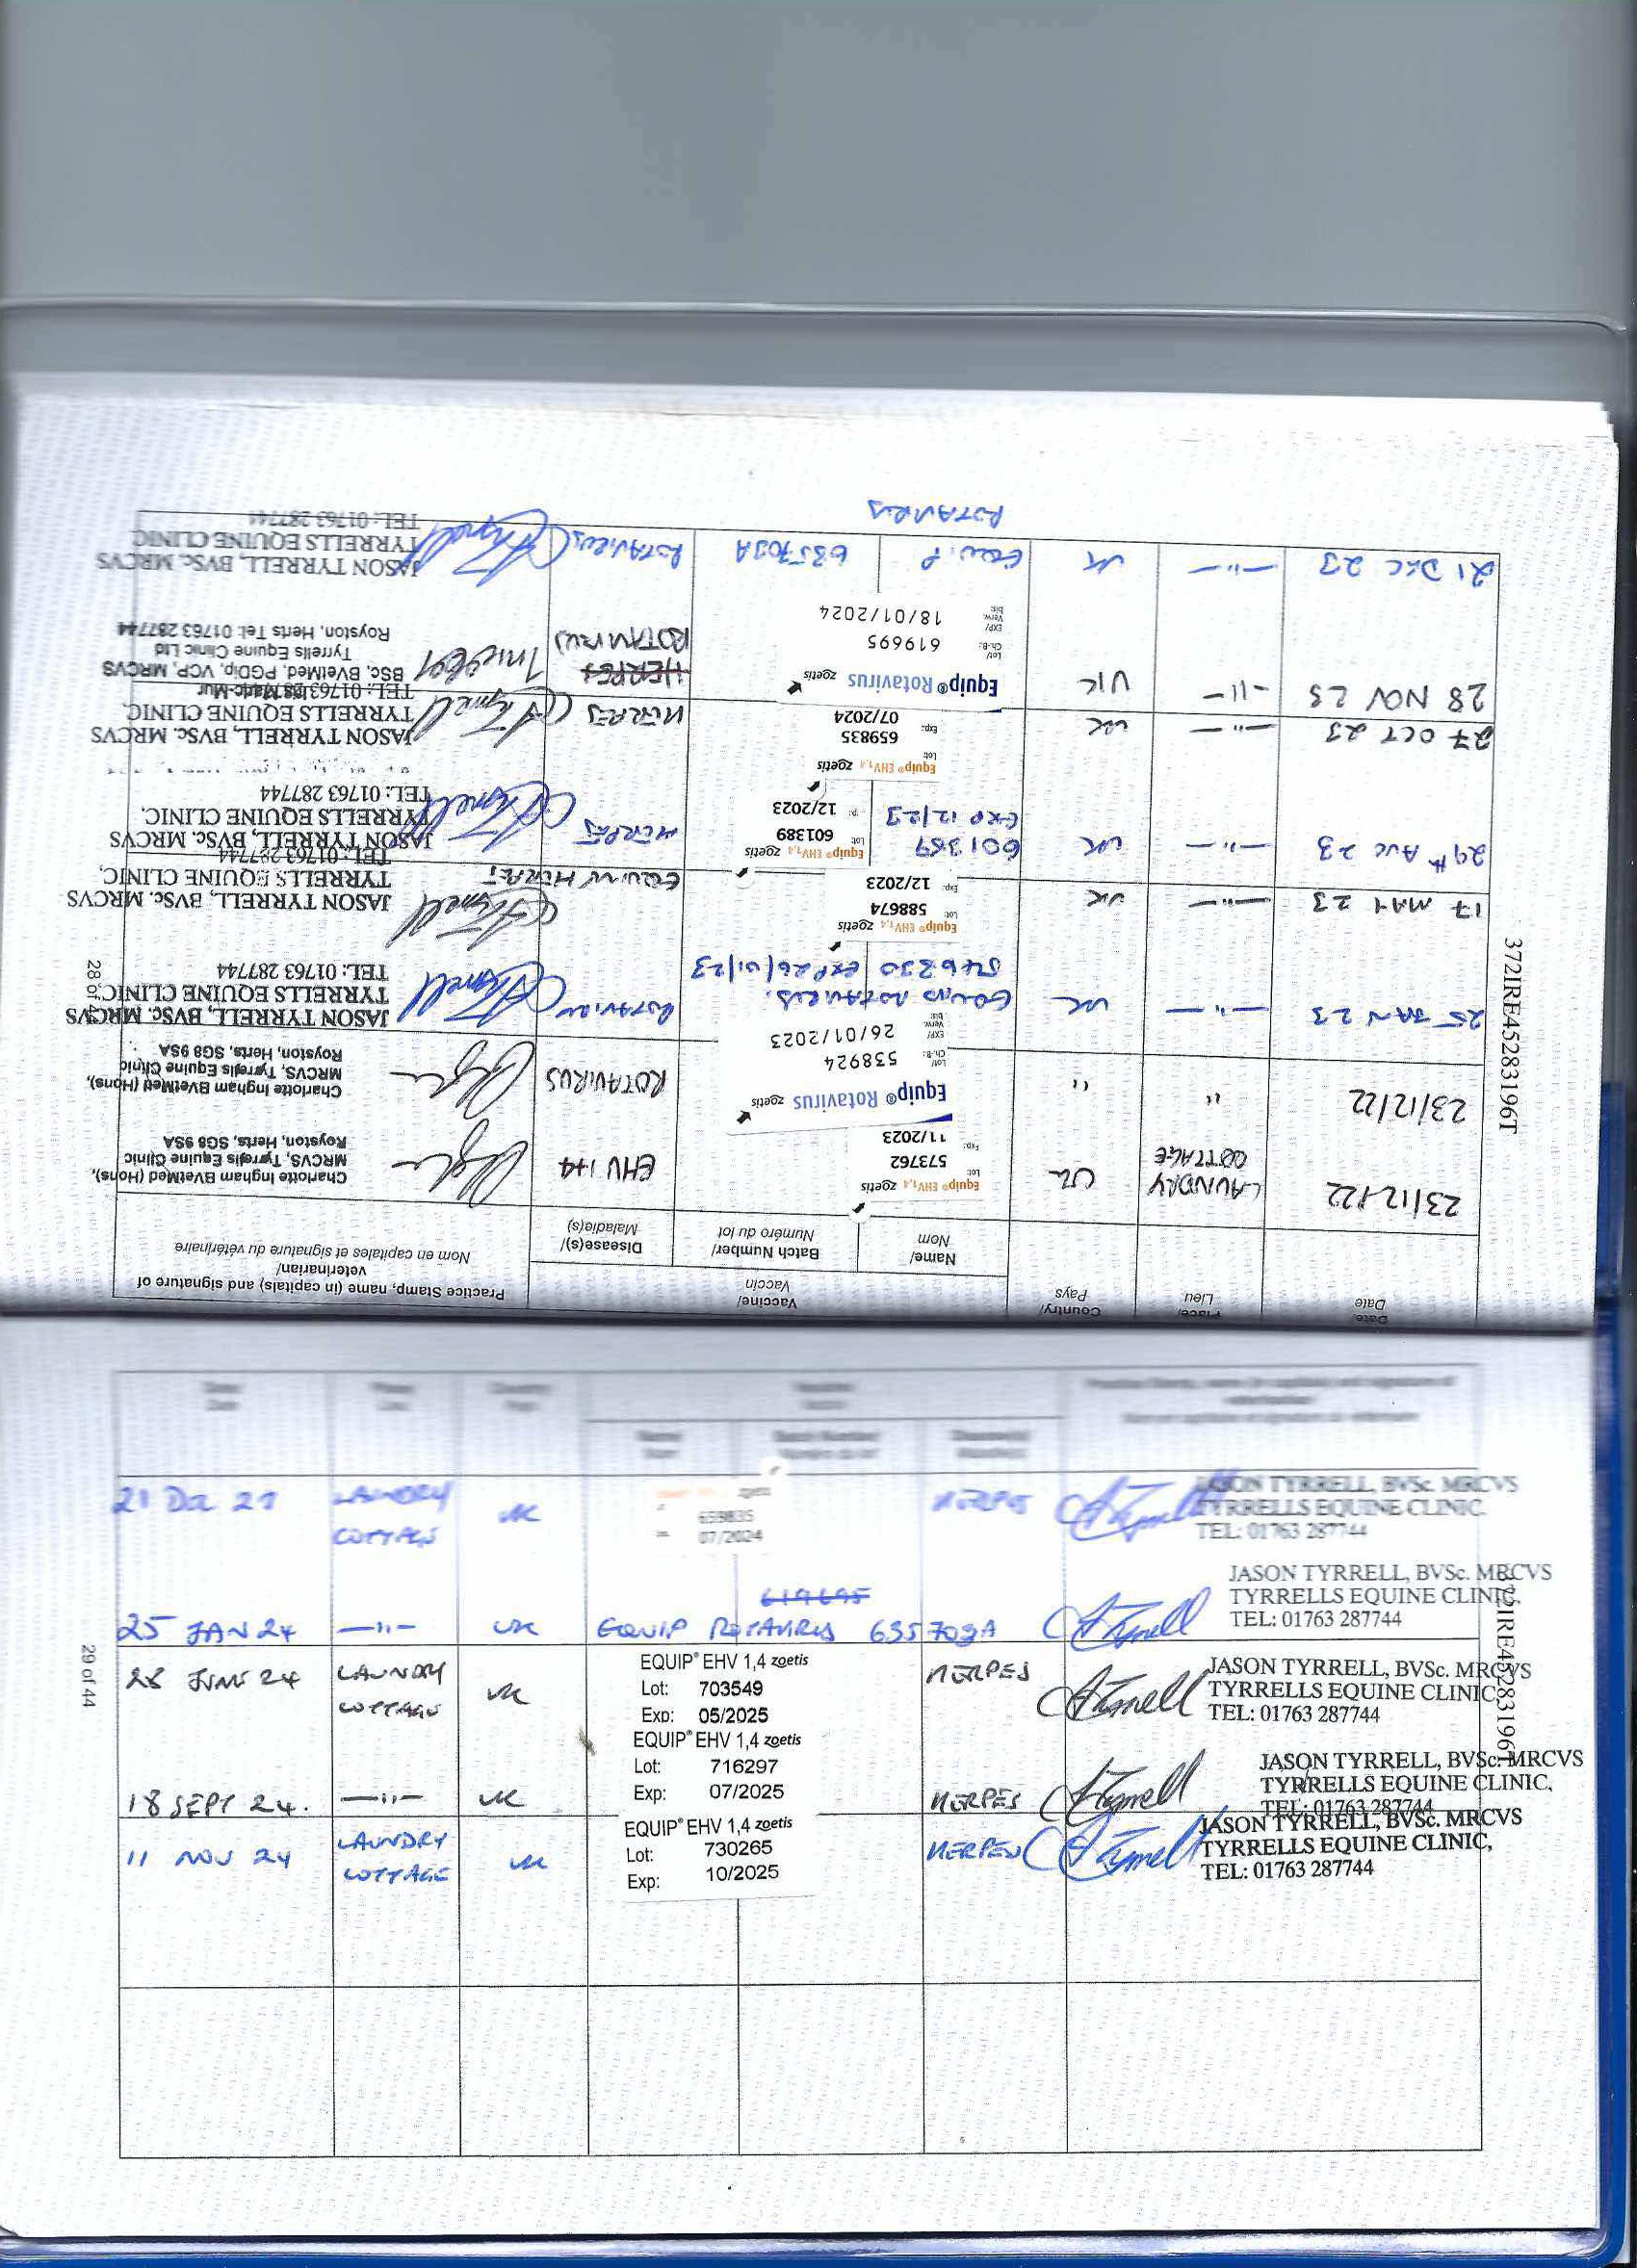 Date/
Date
Place/
Lieu
Country/
Pays
Vaccine/
Vaccin
Name/
Nom
Batch Number/
Numéro du lot
Disease(s)/
Maladie(s)
Practice Stamp, name (in capitals) and signature of
veterinarian/
Nom en capitales et signature du vétérinaire
23/12/22
LAUNDRY
COTTAGE
UK
Equip® EHV1,4 zoetis
Lot: 573762
Exp: 11/2023
EHV 1+4
Charlotte Ingham BVetMed (Hons),
MRCVS, Tyrrells Equine Clinic
Royston, Herts, SG8 9SA
23/12/22
"
"
Equip® Rotavirus zoetis
Lot/ Ch.-B.: 538924
EXP/ Verw. bis: 26/01/2023
ROTAVIRUS
Charlotte Ingham BVetMed (Hons),
MRCVS, Tyrrells Equine Clinic
Royston, Herts, SG8 9SA
25 JAN 23
—"—
UK
EQUIP ROTAVIRUS.
546330 EXP 26/01/23
ROTAVIRUS
JASON TYRRELL, BVSc. MRCVS
TYRRELLS EQUINE CLINIC,
TEL: 01763 287744
28 of 44
17 MAY 23
—"—
UK
Equip® EHV1,4 zoetis
Lot: 588674
Exp: 12/2023
EQUINE HERPES
JASON TYRRELL, BVSc. MRCVS
TYRRELLS EQUINE CLINIC,
TEL: 01763 287744
29th AUG 23
—"—
UK
601389
EXP 12/23
Equip® EHV1,4 zoetis
Lot: 601389
12/2023
HERPES
JASON TYRRELL, BVSc. MRCVS
TYRRELLS EQUINE CLINIC,
TEL: 01763 287744
27 OCT 23
—"—
UK
Equip® EHV1,4 zoetis
Lot: 659835
Exp: 07/2024
HERPES
JASON TYRRELL, BVSc. MRCVS
TYRRELLS EQUINE CLINIC,
TEL: 01763 287744
28 NOV 23
—"—
UK
Equip® Rotavirus zoetis
Lot/ Ch.-B.: 619695
EXP/ Verw. bis: 18/01/2024
HERPES
ROTAVIRUS
BSc, BVetMed, PGDip, VCP, MRCVS
Tyrrells Equine Clinic Ltd
Royston, Herts Tel: 01763 287744
21 DEC 23
—"—
UK
EQUIP
ROTAVIRUS
635703A
ROTAVIRUS
JASON TYRRELL, BVSc. MRCVS
TYRRELLS EQUINE CLINIC
TEL: 01763 287744
372IRE45283196T
21 DEC 23
LAUNDRY
COTTAGE
UK
659835
07/2024
HERPES
JASON TYRRELL, BVSc. MRCVS
TYRRELLS EQUINE CLINIC,
TEL: 01763 287744
25 JAN 24
—"—
UK
619695
EQUIP ROTAVIRUS 635703A
JASON TYRRELL, BVSc. MRCVS
TYRRELLS EQUINE CLINIC,
TEL: 01763 287744
28 JUNE 24
LAUNDRY
COTTAGE
UK
EQUIP® EHV 1,4 zoetis
Lot: 703549
Exp: 05/2025
HERPES
JASON TYRRELL, BVSc. MRCVS
TYRRELLS EQUINE CLINIC,
TEL: 01763 287744
18 SEPT 24.
—"—
UK
EQUIP® EHV 1,4 zoetis
Lot: 716297
Exp: 07/2025
HERPES
JASON TYRRELL, BVSc. MRCVS
TYRRELLS EQUINE CLINIC,
TEL: 01763 287744
11 NOV 24
LAUNDRY
COTTAGE
UK
EQUIP® EHV 1,4 zoetis
Lot: 730265
Exp: 10/2025
HERPES
JASON TYRRELL, BVSc. MRCVS
TYRRELLS EQUINE CLINIC,
TEL: 01763 287744
29 of 44
372IRE45283196T